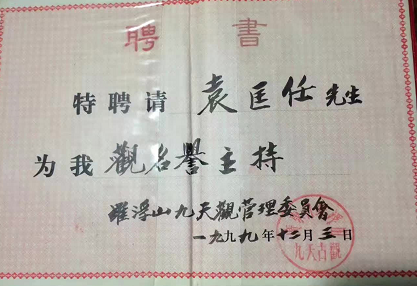 聘書
特聘请 袁匡任 先生
为我觀名譽主持
羅浮山九天觀管理委員會
一九九九年十二月三日
九天古觀